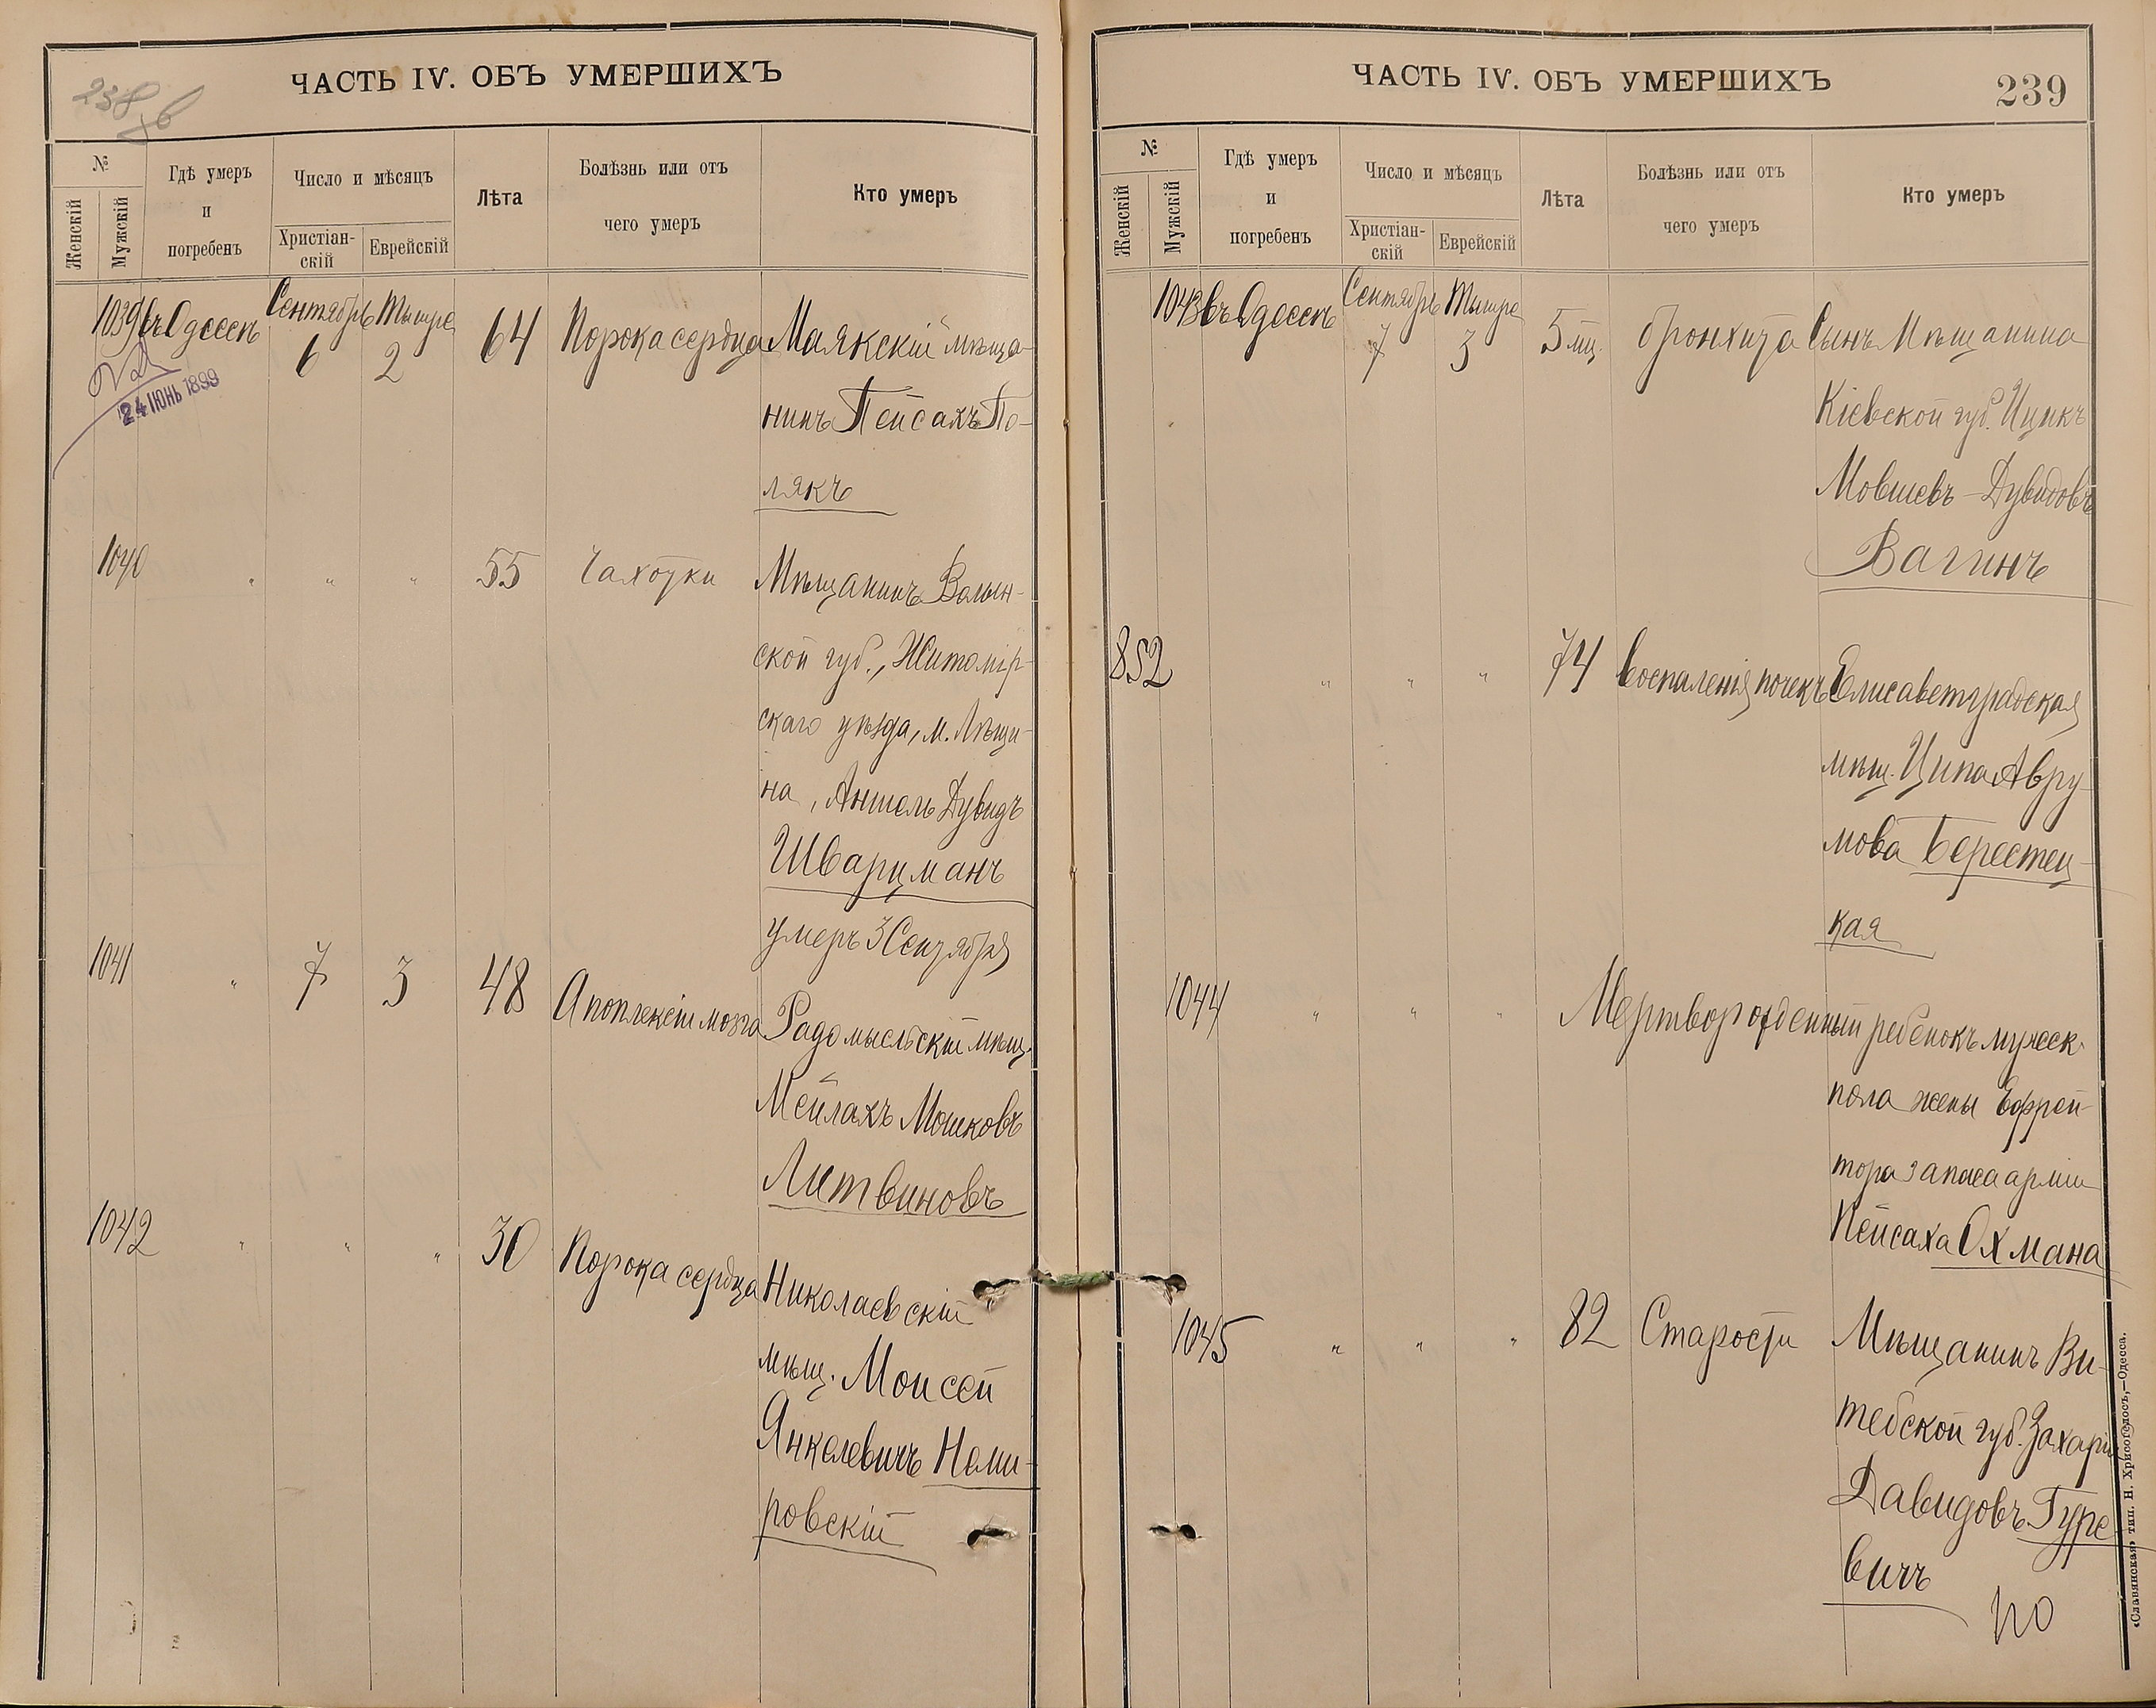 238 об
ЧАСТЬ IV. ОБЪ УМЕРШИХЪ
№
Женскій
Мужскій
Гдѣ умеръ
и
погребенъ
Число и мѣсяцъ
Христіан-
скій
Еврейскій
Лѣта
Болѣзнь или отъ
чего умеръ
Кто умеръ
1039 въ Одессѣ Сентябрь 6 Тишре 2 64 Порока сердца Маякскій мѣща-
нинъ Пейсахъ По-
лякъ
24 ІЮНЬ 1899
1040 " " " 55 Чахотки Мѣщанинъ Волын-
ской губ., Житомір-
скаго уѣзда, м. Лѣщи-
на, Аншель Дувидъ
Шварцманъ
умеръ 3 Сентября
1041 " 7 3 48 Апоплексіи мозга Радомысльскій мѣщ.
Мейлахъ Мошковъ
Литвиновъ
1042 " " " 30 Порока сердца Николаевскій
мѣщ. Моисей
Янкелевичъ Неми-
ровскій
ЧАСТЬ IV. ОБЪ УМЕРШИХЪ
239
№
Женскій
Мужскій
Гдѣ умеръ
и
погребенъ
Число и мѣсяцъ
Христіан-
скій
Еврейскій
Лѣта
Болѣзнь или отъ
чего умеръ
Кто умеръ
1043 въ Одессѣ Сентябрь 7 Тишре 3 5 мц. бронхита Сынъ Мѣщанина
Кіевской губ. Ицикъ
Мовшевъ-Дувидовъ
Вагинъ
852 " " " 74 воспаленія почекъ Елисаветградская
мѣщ. Ципа Авру-
мова Берестец-
кая
1044 " " " Мертворожденный ребенокъ мужск.
пола жены Ефрей-
тора запаса арміи
Пейсаха Охмана
1045 " " " 82 Старости Мѣщанинъ Ви-
тебской губ. Захарій
Давидовъ Гуре-
вичъ
«Славянская» тип. Н. Хрисогелосъ,—Одесса.